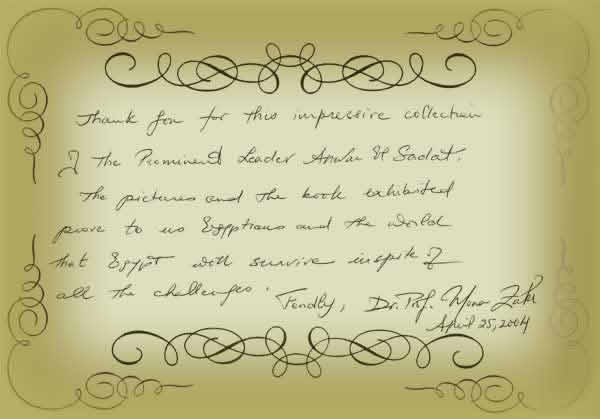 Thank you for this impressive collection
of the Prominent Leader Anwar El Sadat.
The pictures and the book exhibited
prove to us Egyptians and the world
that Egypt will survive inspite of
all the challenges.
Fondly, Dr. Prof. Mona Zaki
April 25, 2004